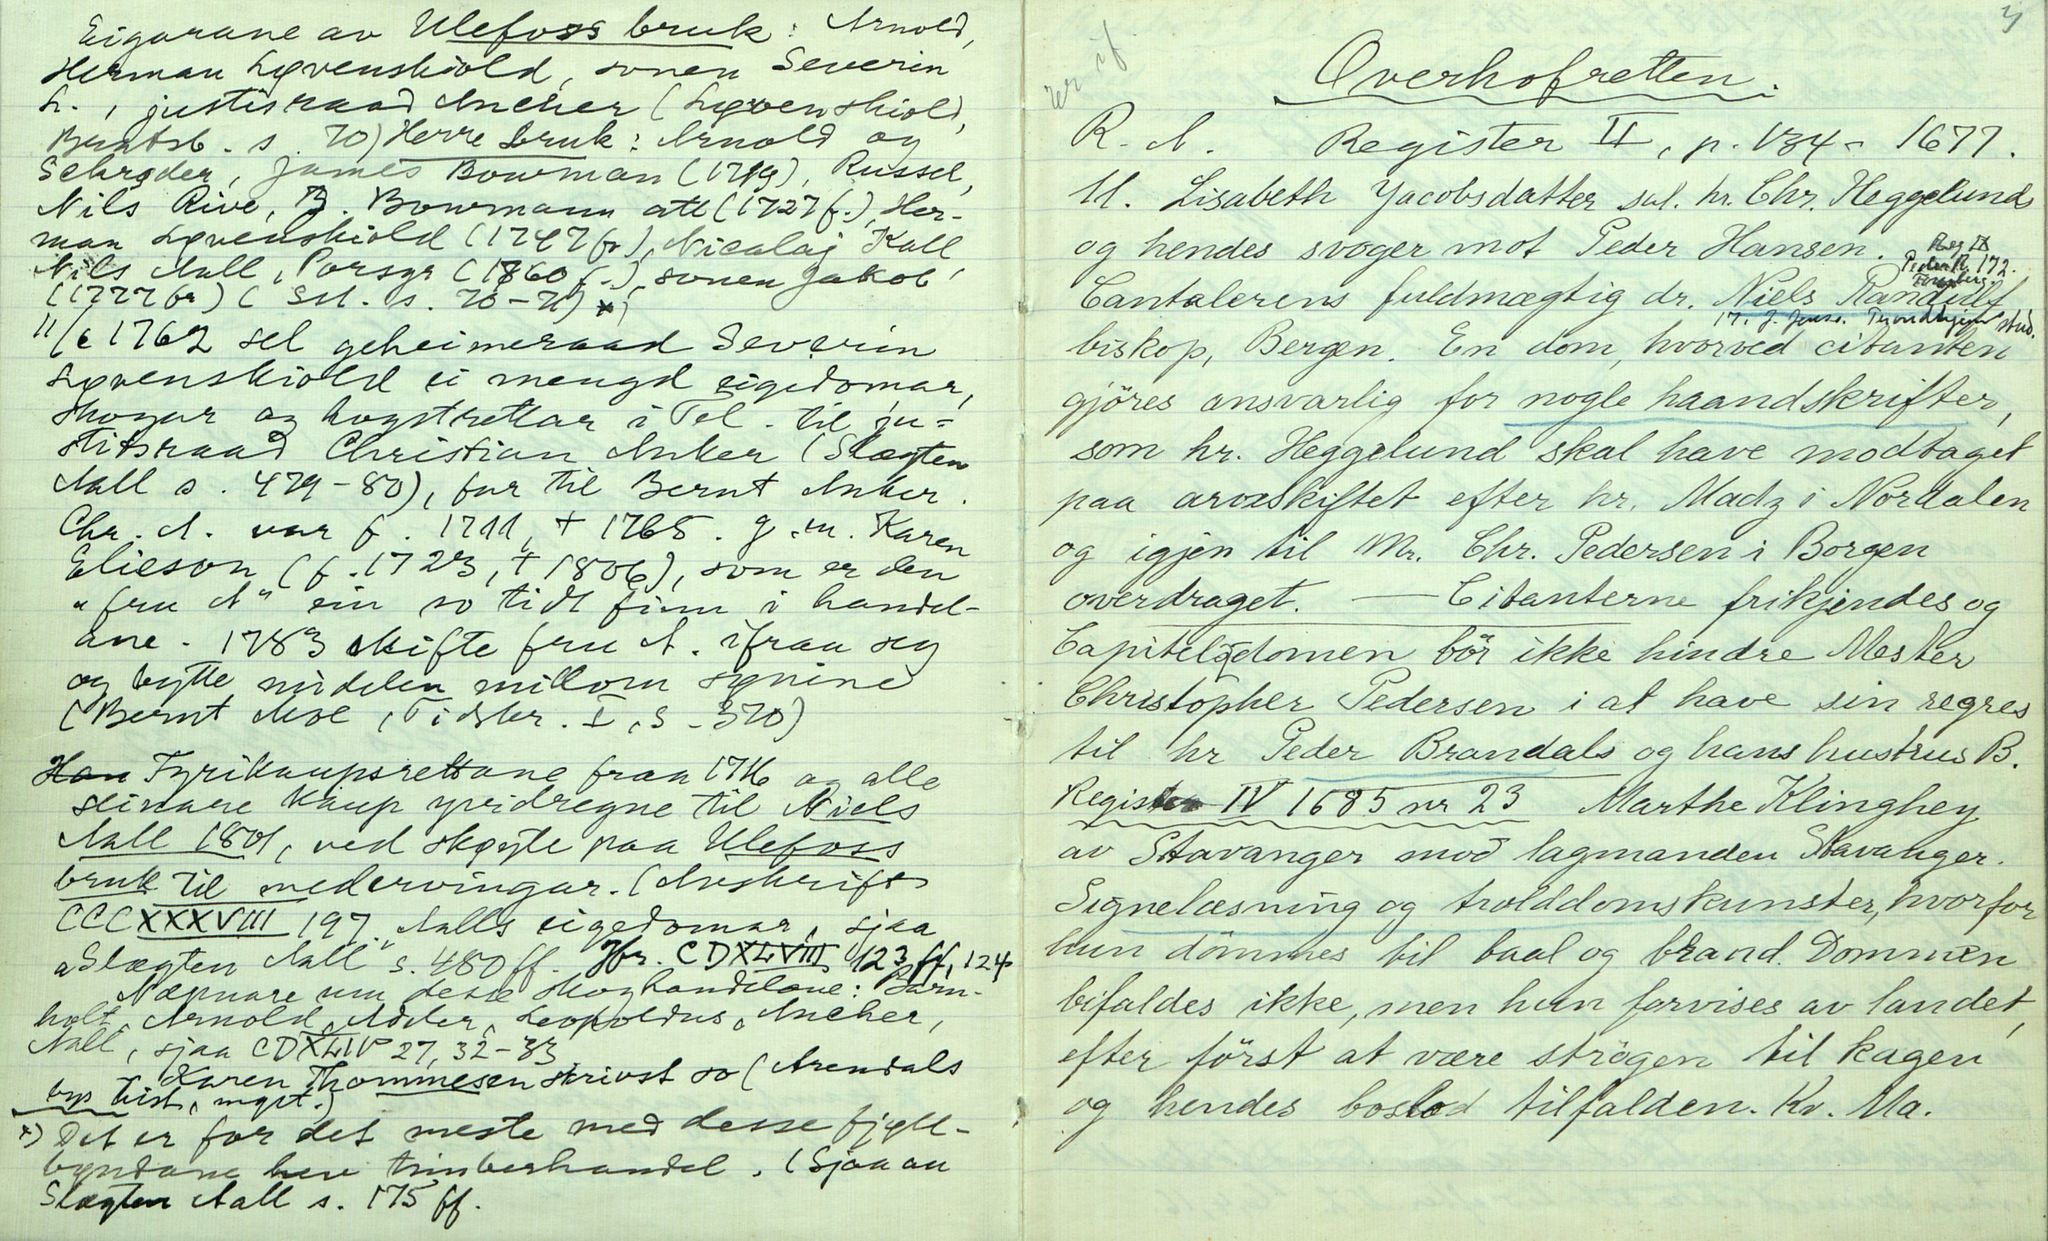 Eigarane av Ulefoss bruk: Arnold,
Herman Løvenskiold, sonen Severin
L., justisraad Ancher (Løvenskiold,
Bratsb. s. 70) Herre bruk: Arnold og
Schrøder, James Bowman (1719), Russel,
Nils Rive, B. Bowmann att (1727 f.), Her-
man Løvenskiold (1747 fr), Nicolaj Kall,
Nils Aall, Porsgr (1760 f.), sonen Jakob
(1777 fr) (Sst. s. 70-71) *)
11/6 1762 sel geheimeraad Severin
Løvenskiold ei mengd eigedomar,
skogar og hogstrettar i Tel. til ju-
stitsraad Christian Anker (Slægten
Aall s. 479-80), far til Bernt Anker.
Chr. A. var f. 1711, † 1765. g. m. Karen
Elieson (f. 1723, † 1806), som er den
"fru A" ein so tidt finn i handel-
ane. 1783 skifte fru A. ifraa seg
og bytte midelen millom synine
(Bernt Moe, Tidskr. I, s. 370)
Han Fyrikaupsrettane fraa 1716 og alle
seinare kaup yvidregne til Niels
Aall 1801, ved skøyte paa Ulefoss
bruk til medervingar. (Avskrift
CCCXXXVIII 197. Aalls eigedomar, sjaa
"Slægten Aall" s. 480 ff. Jfr. CDXLVIII 123 ff, 124
Næmare um desse skoghandelane: Barn-
holt, Arnold, Adeler, Leopoldus, Ancher,
Aall, sjaa CDXLIV 27, 32-33.
Karen Thommesen skriv st so (Arendals
bys hist, mgst.)
*) Det er for det meste med desse fjell-
bygdane her timberhandel. (Sjaa au
Slægten Aall s. 175 ff.
y
Overhofretten.
R. A. Register II, p. 184 - 1677.
11. Lisabeth Jacobsdatter sal. hr. Chr. Heggelund
og hendes svoger mot Peder Hansen.
Reg IX
172.
Cantzlerens fuldmægtig dr. Niels Randulf
biskop, Bergen. En dom, hvorved citanten
gjöres ansvarlig for nogle haandskrifter,
som hr. Heggelund skal have modtaget
paa arveskiftet efter hr. Madz i Nordalen
og igjen til Mr. Chr. Pedersen i Borgen
overdraget. — Citanterne frikjendes og
Capitelsdomen bör ikke hindre Mester
Christopher Pedersen i at have sin regres
til hr Peder Brandals og hans hustrus B.
Register IV 1685 nr 23 Marthe Klinghey
av Stavanger mod lagmanden Stavanger.
Signelæsning og trolddomskunster, hvorfor
hun dömmes til baal og brand. Dommen
bifaldes ikke, men hun forvises av landet,
efter först at være strögen til kagen
og hendes boslod tilfalden. Kr. Ma.